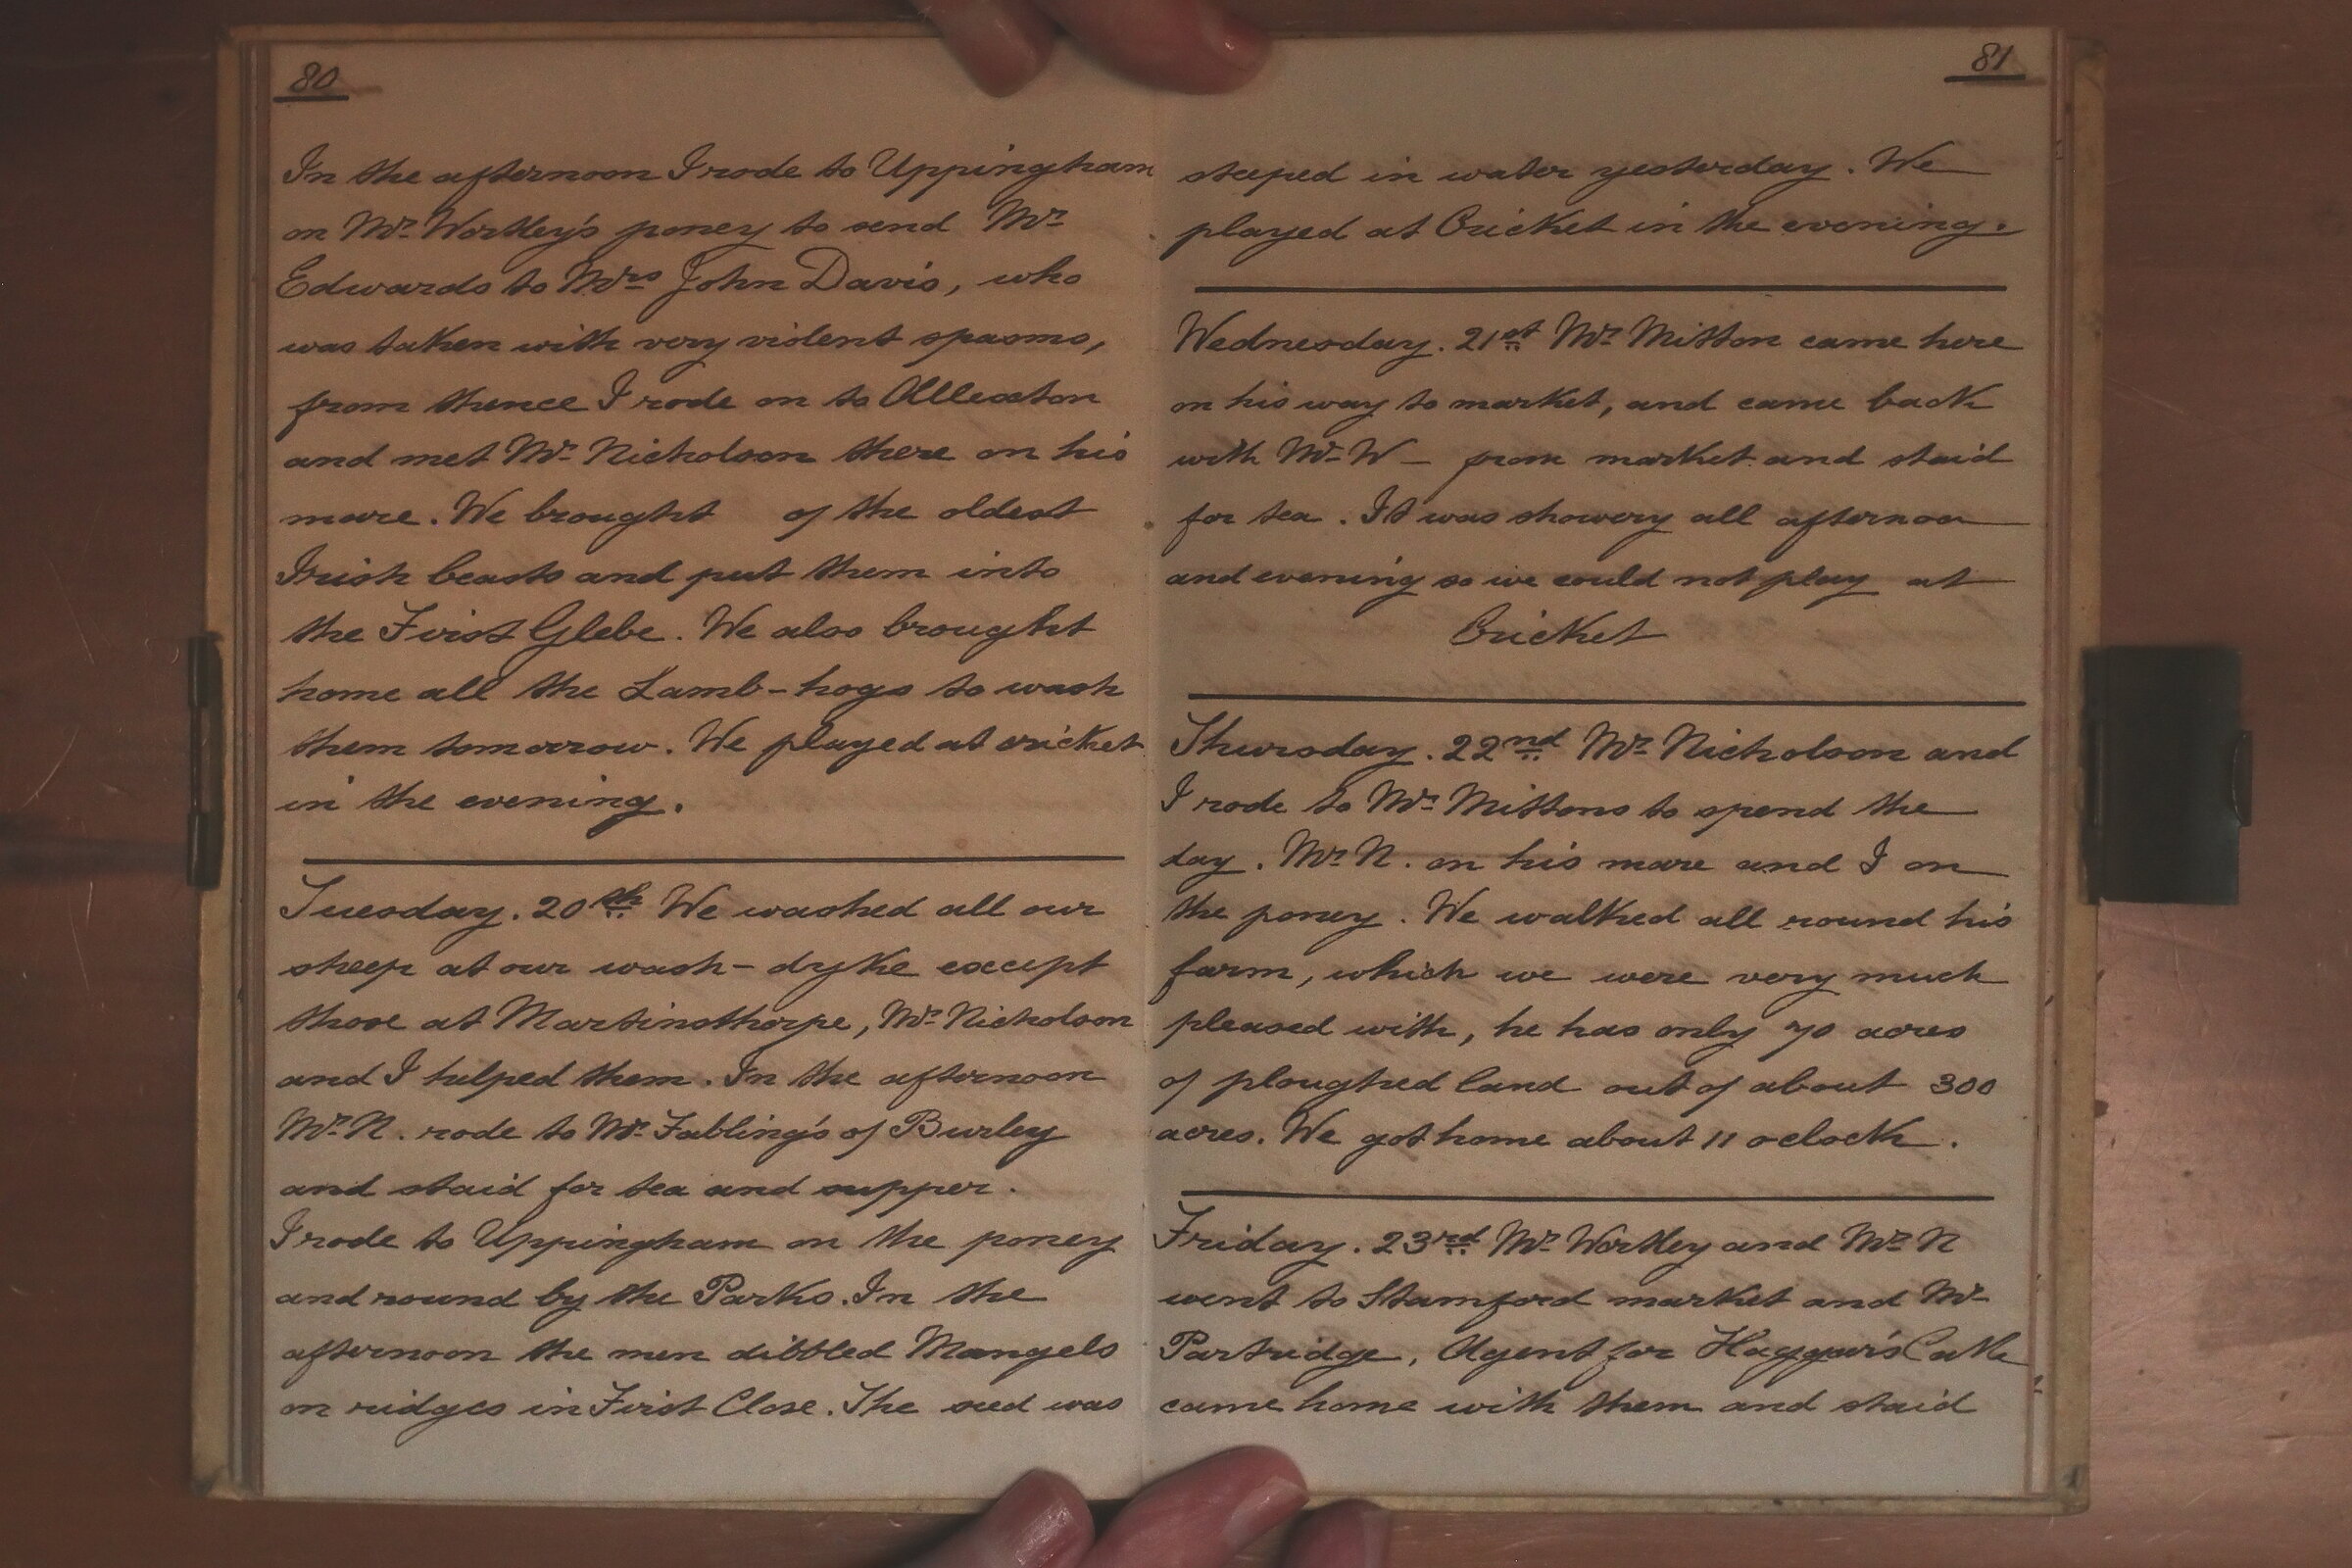 80
In the afternoon I rode to Uppingham
on Mr. Wortley's poney to send Mr.
Edwards to Mrs John Davis, who
was taken with very violent spasms,
from thence I rode on to Allexton
and met Mr. Nicholson there on his
mare. We brought of the oldest
Irish beasts and put them into
the First Glebe. We also brought
home all the Lamb-hogs to wash
them tomorrow. We played at cricket
in the evening.
Tuesday. 20th We washed all our
sheep at our wash-dyke except
those at Martinsthorpe, Mr. Nicholson
and I helped them. In the afternoon
Mr. N. rode to Mr. Fabling's of Burley
and staid for tea and supper.
I rode to Uppingham on the poney
and round by the Parks. In the
afternoon the men dibbled Mangels
on ridges in First Close. The seed was
81
steeped in water yesterday. We
played at Cricket in the evening.
Wednesday. 21st Mr. Mitton came here
on his way to market, and came back
with Mr. W— from market and staid
for tea. It was showery all afternoon
and evening so we could not play at
Cricket
Thursday. 22nd Mr. Nicholson and
I rode to Mr. Mittons to spend the
day. Mr. N. on his mare and I on
the poney. We walked all round his
farm, which we were very much
pleased with, he has only 70 acres
of ploughed land out of about 300
acres. We got home about 11 oclock.
Friday. 23rd Mr. Wortley and Mr. N
went to Stamford market and Mr.
Partridge, Agent for Haggar's Cake
came home with them and staid